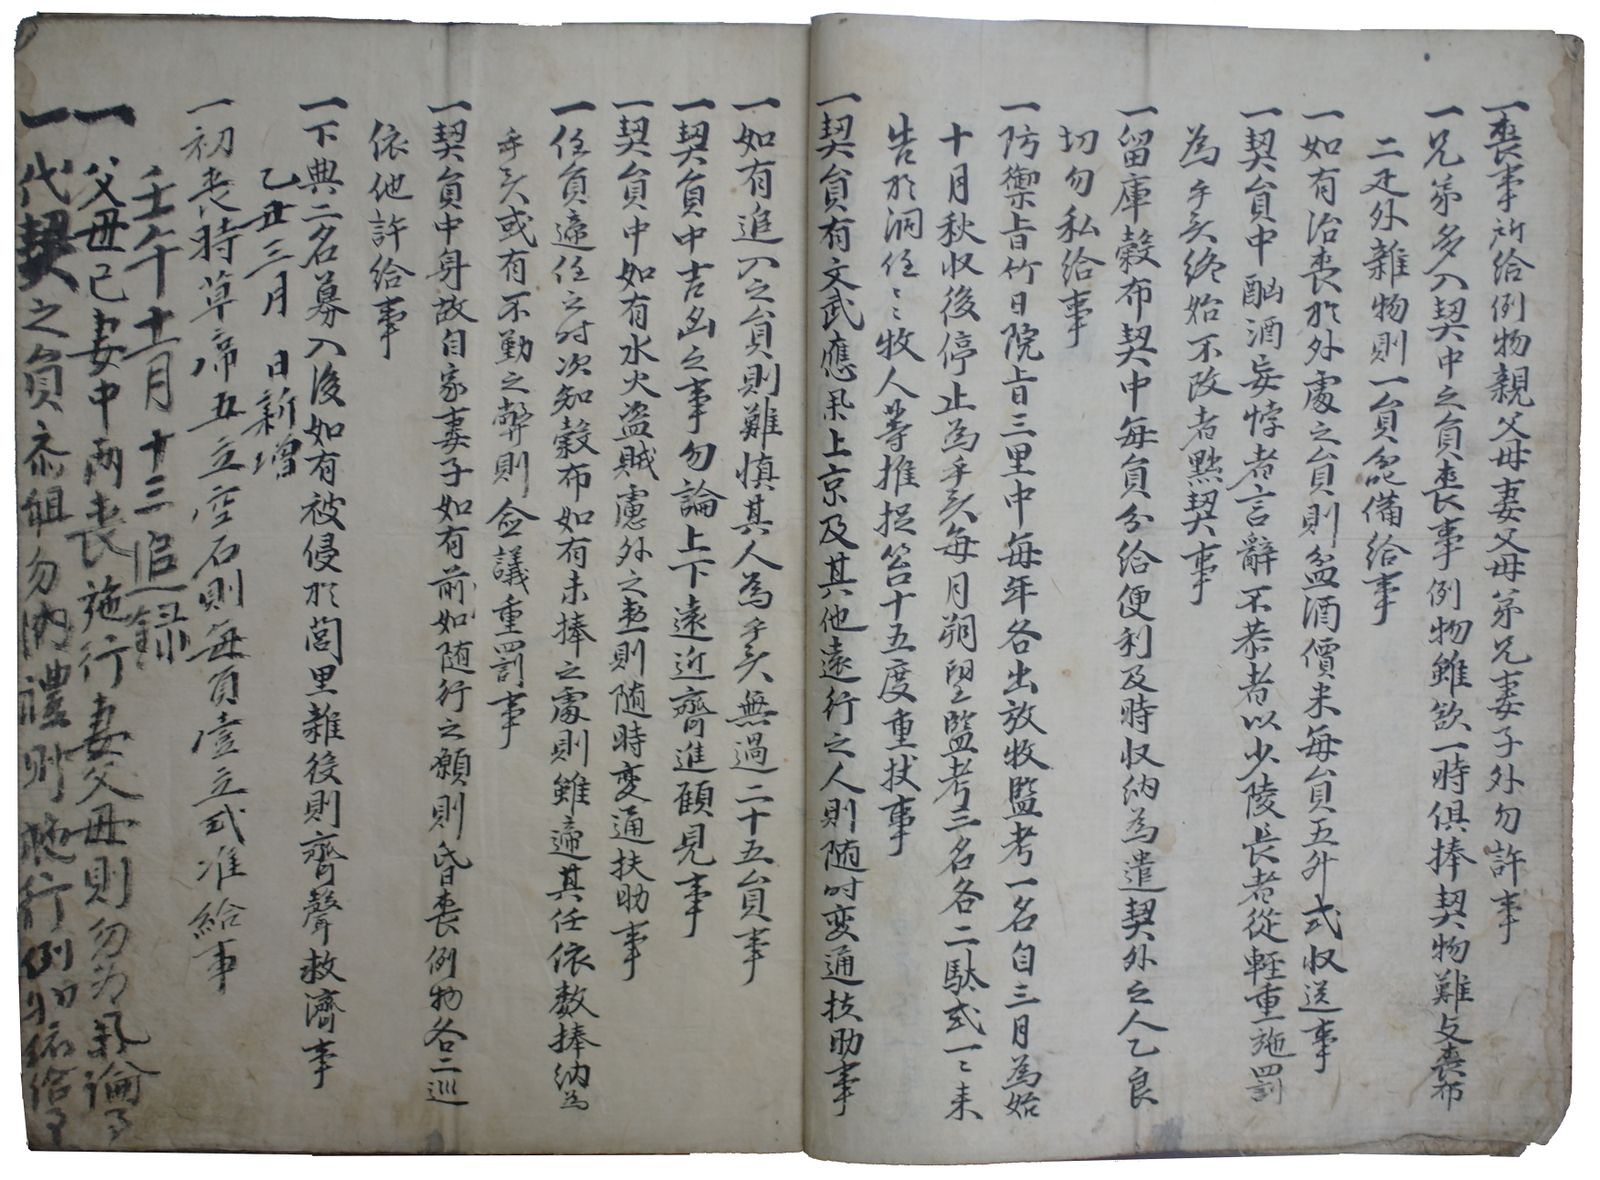 一喪事所給例物親父母妻父母弟兄妻子外勿許事
一兄弟多入契中之員喪事例物雖欲一時俱捧契物難与喪布
二疋外雜物則一員備給事
一如有治喪於外處之員則盆酒價米每員五升式収送事
一契員中酗酒妄悖者言辭不恭者以少陵長者從輕重施罰
為乎矣終始不改者黜契事
一留庫穀布契中每員分給便利及時収納為遣契外之人乙良
切勿私給事
一防禦旨竹日院旨三里中每年各出放牧監考一名自三月為始
十月秋収後停止為乎矣每月朔望監考三名各二駄式一〻来
告於洞任〻牧人等推捉笞十五度重杖事
一契員有文武應果上京及其他遠行之人則随时変通扶助事
一如有追入之員則難慎其人為乎矣無過二十五員事
一契員中吉凶之事勿論上下遠近齊進顧見事
一契員中如有水火盗賊慮外之患則随時変通扶助事
一任員遞任之时次知穀布如有未捧之處則雖遞其任依数捧納為
乎矣或有不勤之弊則僉議重罰事
一契員中身故自家妻子如有前如随行之願則昏喪例物各二巡
依他許給事
一下典二名募入後如有被侵於閭里雜役則齊聲救濟事
乙丑三月 日新增
一初喪時草席五立空石則每員壹立式准給事
壬午十一月十三追録
一父母己妻中兩喪施行妻父母則勿為論事
一代契之員勿納禮則施行例依給事